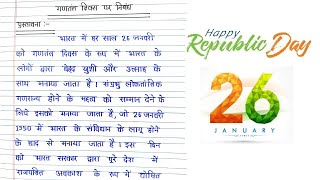 गणतंत्र दिवस पर निबंध
प्रस्तावना :
भारत में हर साल 26 जनवरी
को गणतंत्र दिवस के रूप में भारत के
लोगों द्वारा बेहद खुशी और उत्साह के
साथ मनाया जाता है। संप्रभु लोकतांत्रिक
गणराज्य होने के महत्व को सम्मान देने के
लिये इसको मनाया जाता है, जो 26 जनवरी
1950 में भारत के संविधान के लागू होने
के बाद से मनाया जाता है। इस दिन
को भारत सरकार द्वारा पूरे देश में
राजपत्रित अवकाश के रूप में घोषित
HAPPY
Republic Day
26
JANUARY